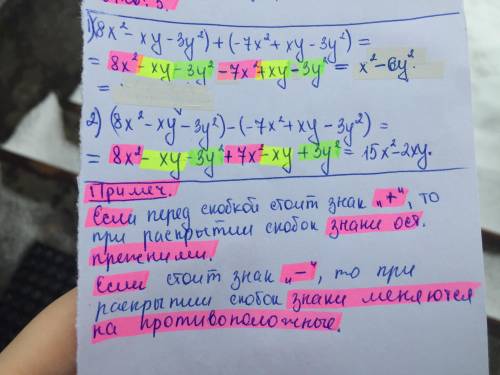 1) (8x² - xy - 3y²) + (-7x² + xy - 3y²) =
= 8x² - xy - 3y² - 7x² + xy - 3y² = x² - 6y².
=
2) (8x² - xy - 3y²) - (-7x² + xy - 3y²) =
= 8x² - xy - 3y² + 7x² - xy + 3y² = 15x² - 2xy.
Примеч.
Если перед скобкой стоит знак „+“, то
при раскрытии скобок знаки ост.
прежними.
Если стоит знак „-“, то при
раскрытии скобок знаки меняются
на противоположные.